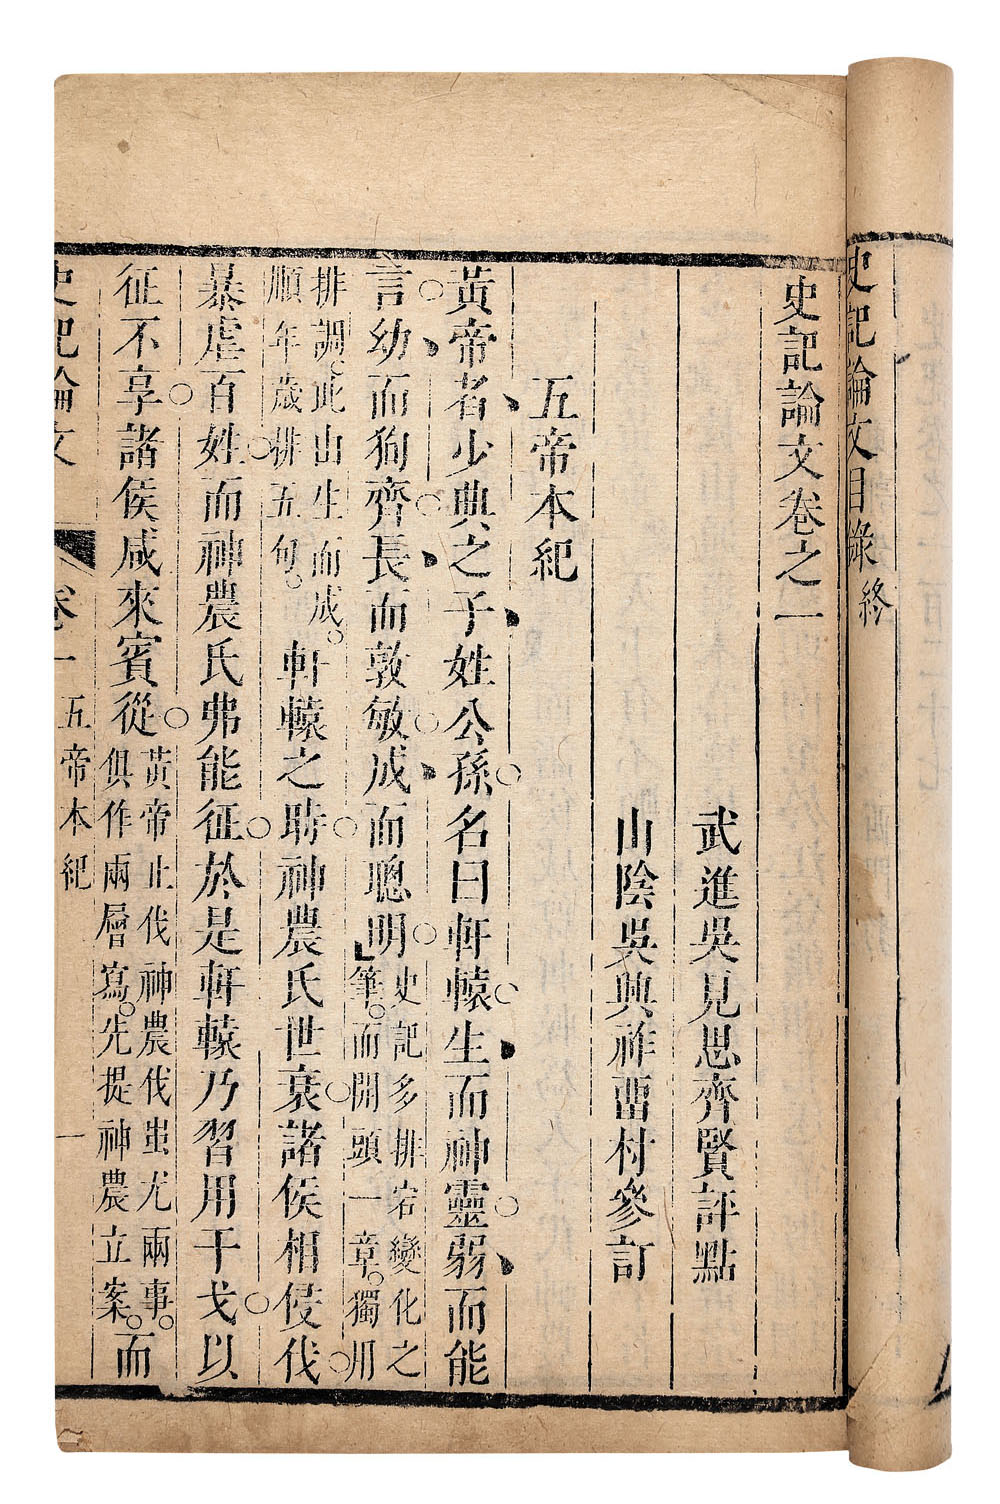 史記論文目錄終
史記論文卷之一
武進吳見思齊賢評點
山陰吳興祚留村參訂
五帝本紀
黃帝者少典之子姓公孫名曰軒轅生而神靈弱而能
言幼而狥齊長而敦敏成而聰明
史記多排宕變化之
筆而開頭一章獨用
排調此山生而成
順年歲排五句
軒轅之時神農氏世衰諸侯相侵伐
暴虐百姓而神農氏弗能征於是軒轅乃習用干戈以
征不享諸侯咸來賓從
黃帝止伐神農伐蚩尤兩事
俱作兩層寫先提神農立案
而
史記論文 卷一 五帝本紀 一